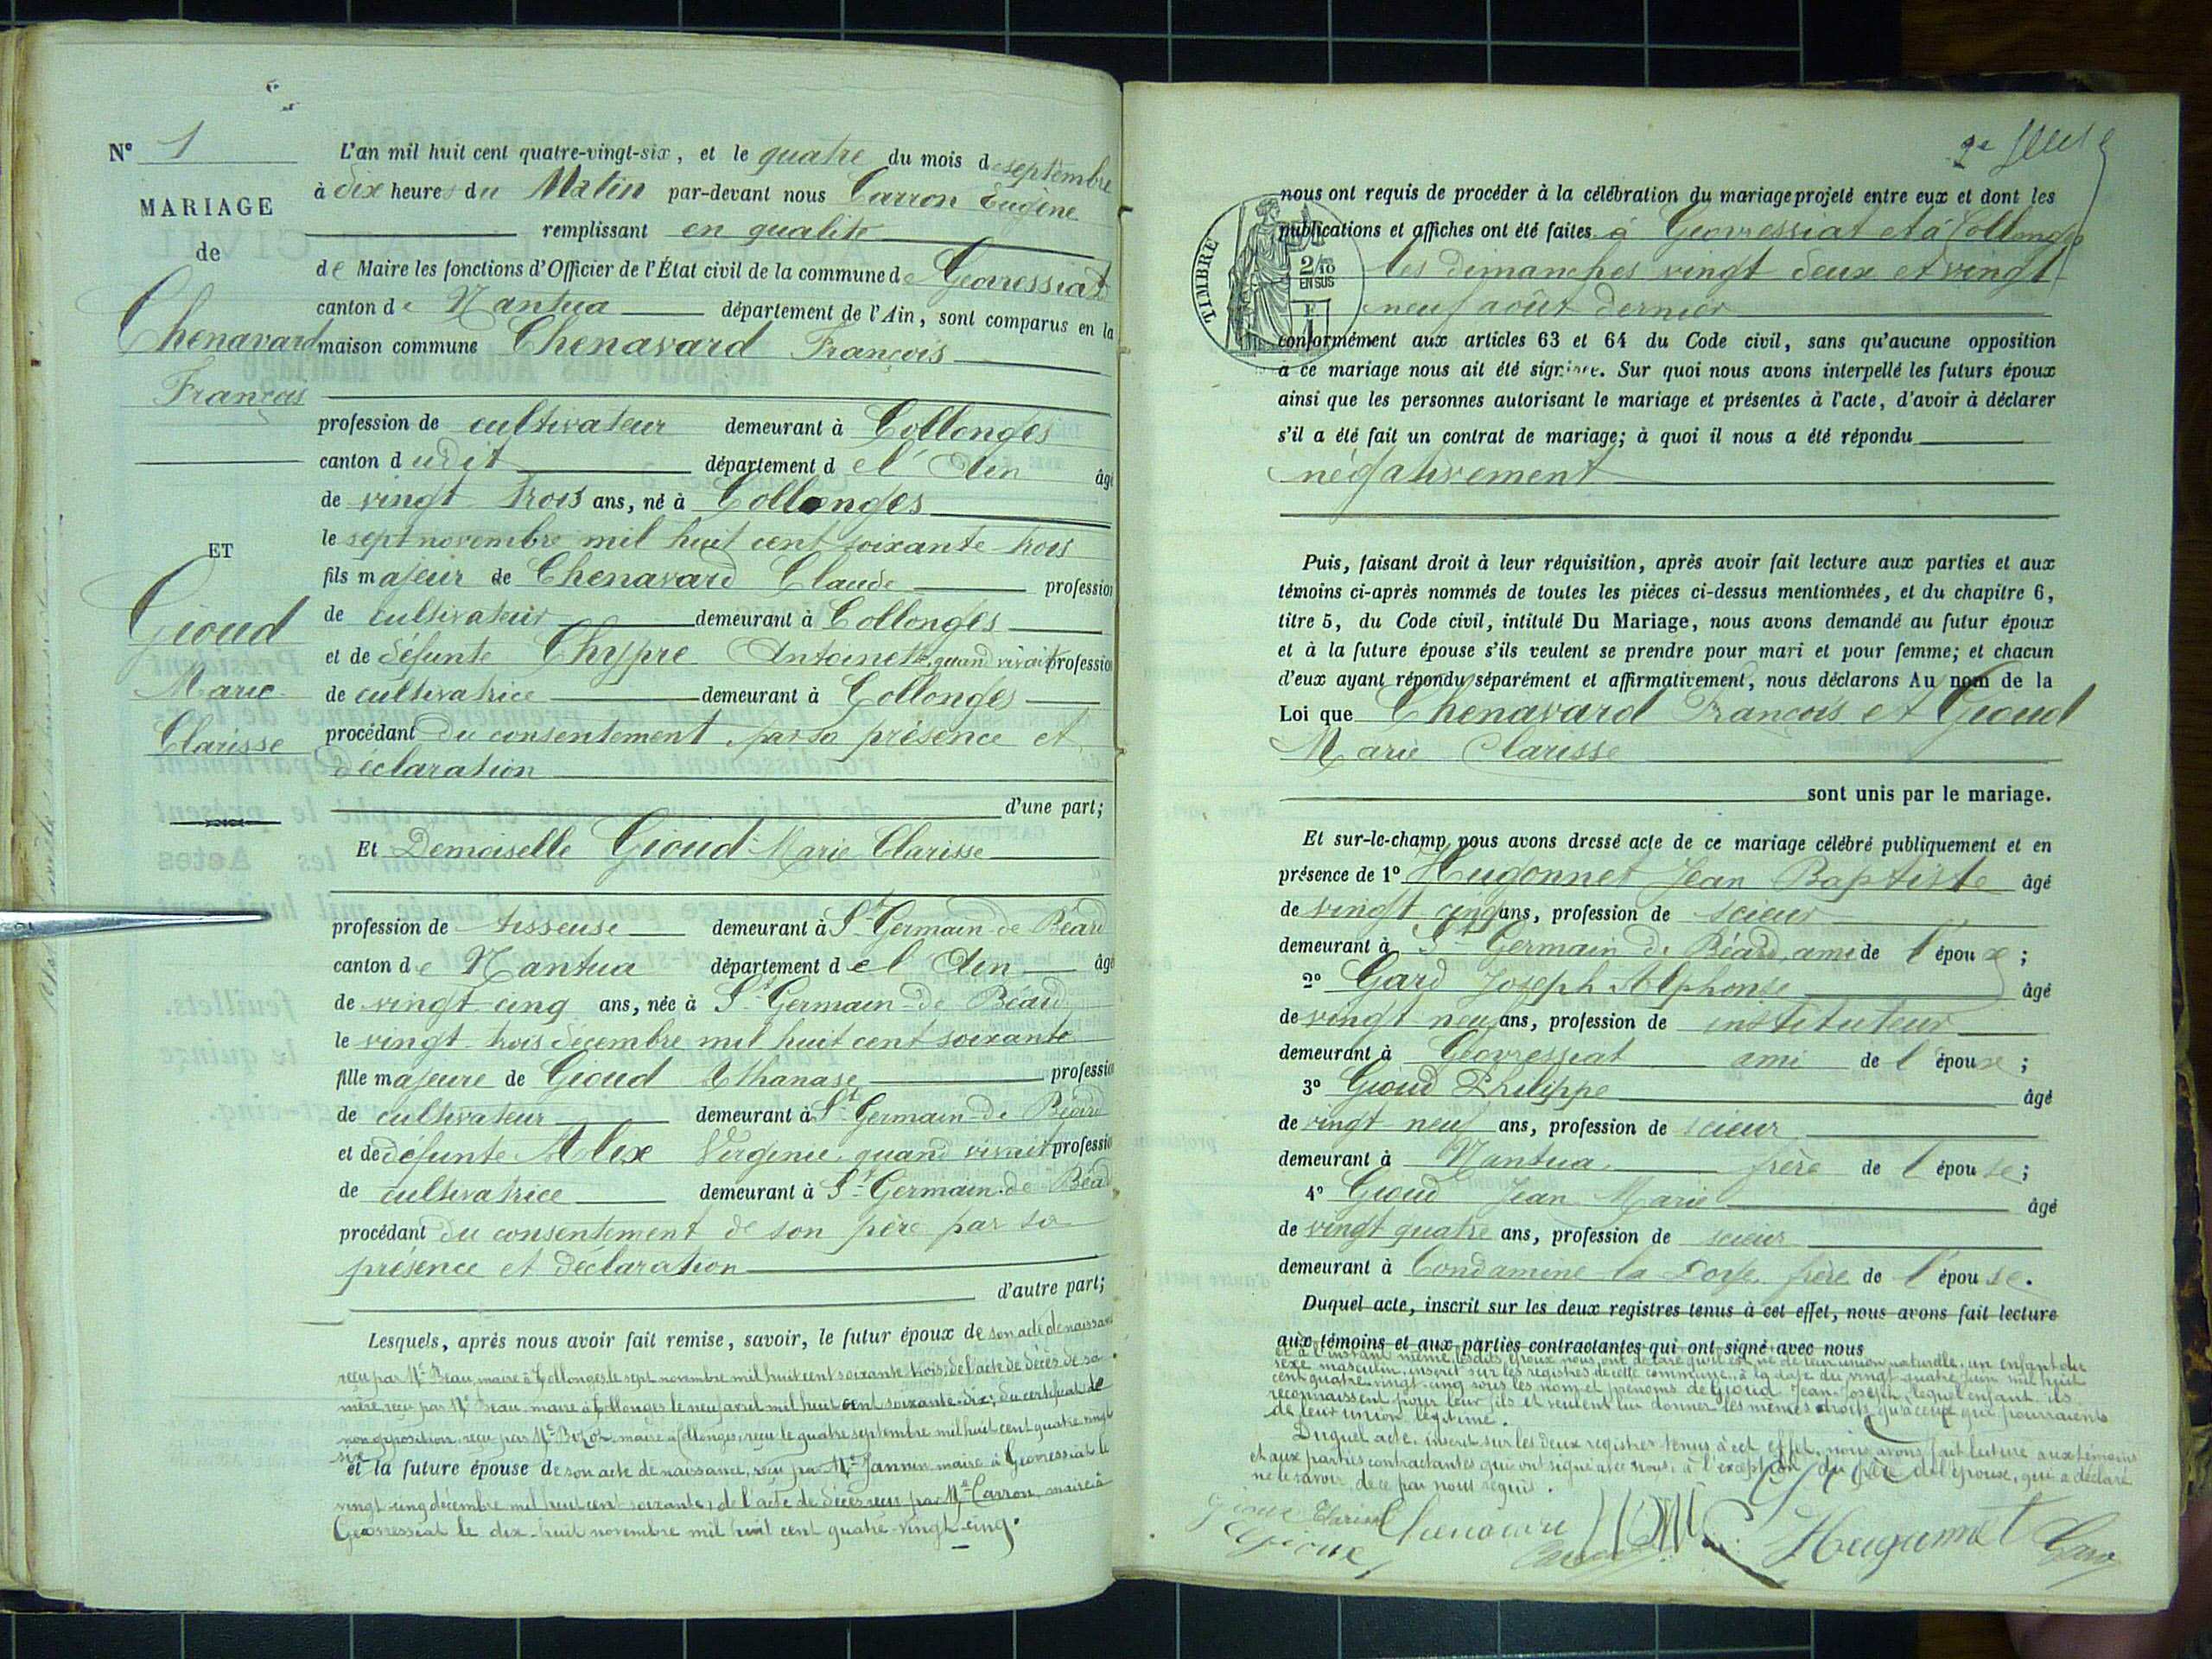 N° 1
MARIAGE
de
Chenavard
François
ET
Gioud
Marie
Clarisse
L'an mil huit cent quatre-vingt-six, et le quatre du mois de septembre
à dix heures du Matin par-devant nous Carron Eugène
remplissant en qualité
de Maire les fonctions d'Officier de l'État civil de la commune de Geovressiat
canton de Nantua département de l'Ain, sont comparus en la
maison commune Chenavard François
profession de cultivateur demeurant à Collonges
canton dudit département de l'Ain âgé
de vingt trois ans, né à Collonges
le sept novembre mil huit cent soixante trois
fils majeur de Chenavard Claude profession
de cultivateur demeurant à Collonges
et de défunte Chypre Antoinette, quand vivait profession
de cultivatrice demeurant à Collonges
procédant du consentement par sa présence et
déclaration
d'une part;
Et Demoiselle Gioud Marie Clarisse
profession de tisseuse demeurant à St Germain de Béard
canton de Nantua département de l'Ain âgé
de vingt cinq ans, née à St Germain de Béard
le vingt trois décembre mil huit cent soixante
fille majeure de Gioud Athanase profession
de cultivateur demeurant à St Germain de Béard
et de défunte Alex Virginie, quand vivait profession
de cultivatrice demeurant à St Germain de Béard
procédant du consentement de son père par sa
présence et déclaration
d'autre part;
Lesquels, après nous avoir fait remise, savoir, le futur époux de son acte de naissance
reçu par Me Beau, maire à Collonges le sept novembre mil huit cent soixante trois; de l'acte de décès de sa
mère reçu par Me Beau, maire à Collonges le neuf avril mil huit cent soixante-dix; du certificat de
non opposition, reçu par Me maire à Collonges, reçu le quatre septembre mil huit cent quatre vingt
six
et la future épouse de son acte de naissance, reçu par Me Jannin maire à Geovressiat le
vingt cinq décembre mil huit cent soixante; de l'acte de décès reçu par Me Carron, maire à
Geovressiat le dix-huit novembre mil huit cent quatre-vingt-cinq.
2e
TIMBRE
2/10
EN SUS
nous ont requis de procéder à la célébration du mariage projeté entre eux et dont les
publications et affiches ont été faites à Geovressiat et à Collonges
les dimanches vingt deux et vingt
neuf août dernier
conformément aux articles 63 et 64 du Code civil, sans qu'aucune opposition
à ce mariage nous ait été signifiée. Sur quoi nous avons interpellé les futurs époux
ainsi que les personnes autorisant le mariage et présentes à l'acte, d'avoir à déclarer
s'il a été fait un contrat de mariage; à quoi il nous a été répondu
négativement
Puis, faisant droit à leur réquisition, après avoir fait lecture aux parties et aux
témoins ci-après nommés de toutes les pièces ci-dessus mentionnées, et du chapitre 6,
titre 5, du Code civil, intitulé Du Mariage, nous avons demandé au futur époux
et à la future épouse s'ils veulent se prendre pour mari et pour femme; et chacun
d'eux ayant répondu séparément et affirmativement, nous déclarons Au nom de la
Loi que Chenavard François et Gioud
Marie Clarisse
sont unis par le mariage.
Et sur-le-champ nous avons dressé acte de ce mariage célébré publiquement et en
présence de 1° Hugonnet Jean Baptiste âgé
de vingt cinq ans, profession de scieur
demeurant à St Germain de Béard, ami de l'époux;
2° Gard Joseph Alphonse âgé
de vingt neuf ans, profession de instituteur
demeurant à Géovressiat ami de l'épouse;
3° Gioud Philippe âgé
de vingt neuf ans, profession de scieur
demeurant à Nantua frère de l'épouse;
4° Gioud Jean Marie âgé
de vingt quatre ans, profession de scieur
demeurant à Condamine la Doye frère de l'épouse.
Duquel acte, inscrit sur les deux registres tenus à cet effet, nous avons fait lecture
aux témoins et aux parties contractantes qui ont signé avec nous
et à l'instant même, lesdits époux nous ont déclaré qu'il est né de leur union naturelle, un enfant du
sexe masculin, inscrit sur les registres de cette commune, à la date du vingt quatre juin mil huit
cent quatre vingt cinq sous les nom et prénoms de Gioud Jean Joseph, lequel enfant ils
reconnaissent pour leur fils et veulent lui donner les mêmes droits qu'à ceux qui pourraient
de leur union légitime.
Duquel acte, inscrit sur les deux registres tenus à cet effet, nous avons fait lecture aux témoins
et aux parties contractantes qui ont signé avec nous, à l'exception du père de l'épouse, qui a déclaré
ne le savoir, de ce par nous requis.
Gioud Clarisse Chenavard Hugonnet Gard
Gioud